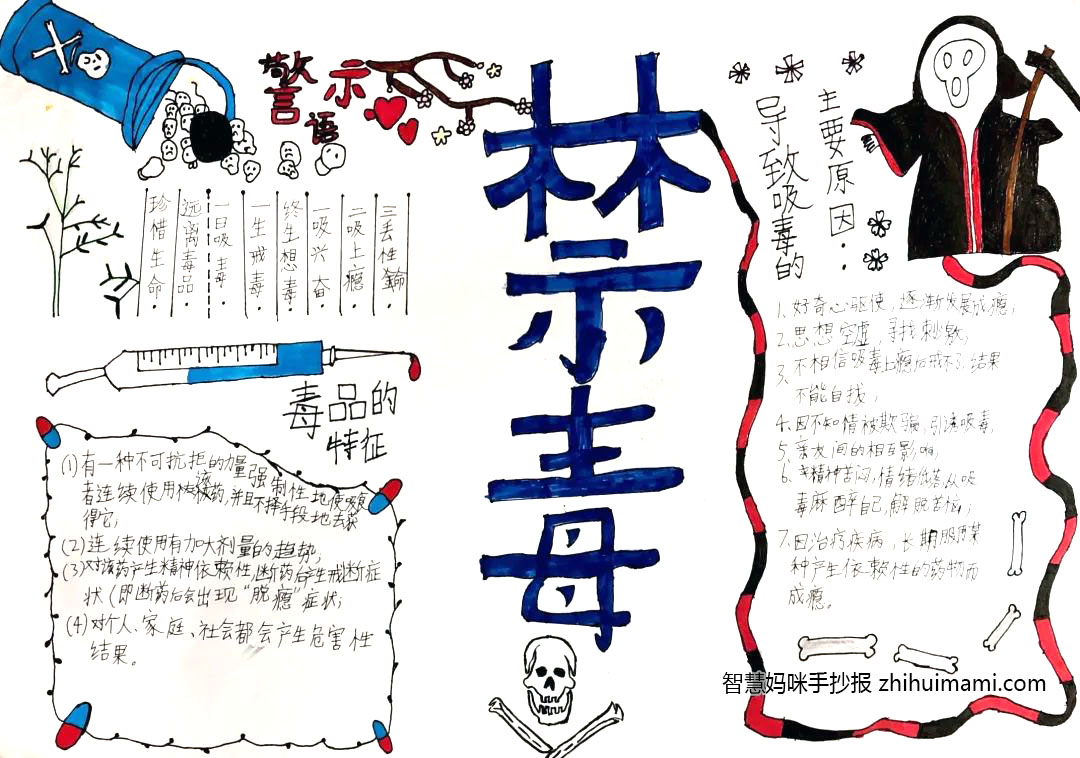 警示
语
珍惜生命.
远离毒品.
一日吸毒.
一生戒毒.
终生想毒.
一吸兴奋.
二吸上瘾.
三丢性
毒品的
特征
(1)有一种不可抗拒的力量强制性地使吸食
者连续使用该药,并且不择手段地去获
得它;
(2)连续使用有加大剂量的趋势;
(3)对该药产生精神依赖性,断药后产生戒断症
状(即断药后会出现“脱瘾”症状;
(4)对个人、家庭、社会都会产生危害性
结果。
禁毒
导致吸毒的
主要原因.
1、好奇心驱使,逐渐发展成瘾;
2、思想空虚,寻找刺激;
3、不相信吸毒上瘾后戒不了.结果
不能自找;
4、因不知情被欺骗,引诱吸毒;
5、亲友间的相互影响;
6、精神苦闷,情绪低落从吸
毒麻醉自己,解脱苦恼;
7、因治疗疾病,长期服用某
种产生依赖性的药物而
成瘾。
智慧妈咪手抄报 zhihuimami.com